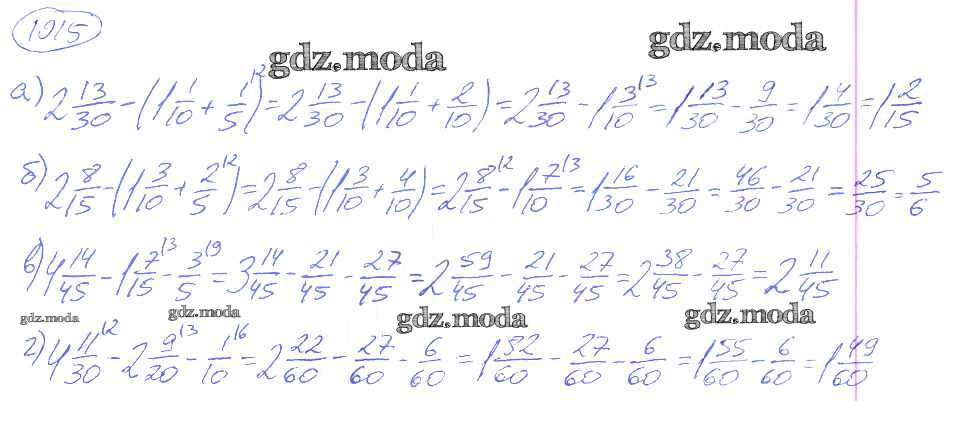 1015
gdz.moda
gdz.moda
а) 2 13/30 - (1 1/10 + 1/5 ^12) = 2 13/30 - (1 1/10 + 2/10) = 2 13/30 - 1 3/10 ^13 = 1 13/30 - 9/30 = 1 4/30 = 1 2/15
б) 2 8/15 - (1 3/10 + 2/5 ^12) = 2 8/15 - (1 3/10 + 4/10) = 2 8/15 ^12 - 1 7/10 ^13 = 1 16/30 - 21/30 = 46/30 - 21/30 = 25/30 = 5/6
в) 4 14/45 - 1 7/15 ^13 - 3/5 ^19 = 3 14/45 - 21/45 - 27/45 = 2 59/45 - 21/45 - 27/45 = 2 38/45 - 27/45 = 2 11/45
gdz.moda
gdz.moda
gdz.moda
gdz.moda
г) 4 11/30 ^12 - 2 9/20 ^13 - 1/10 ^16 = 2 22/60 - 27/60 - 6/60 = 1 82/60 - 27/60 - 6/60 = 1 55/60 - 6/60 = 1 49/60